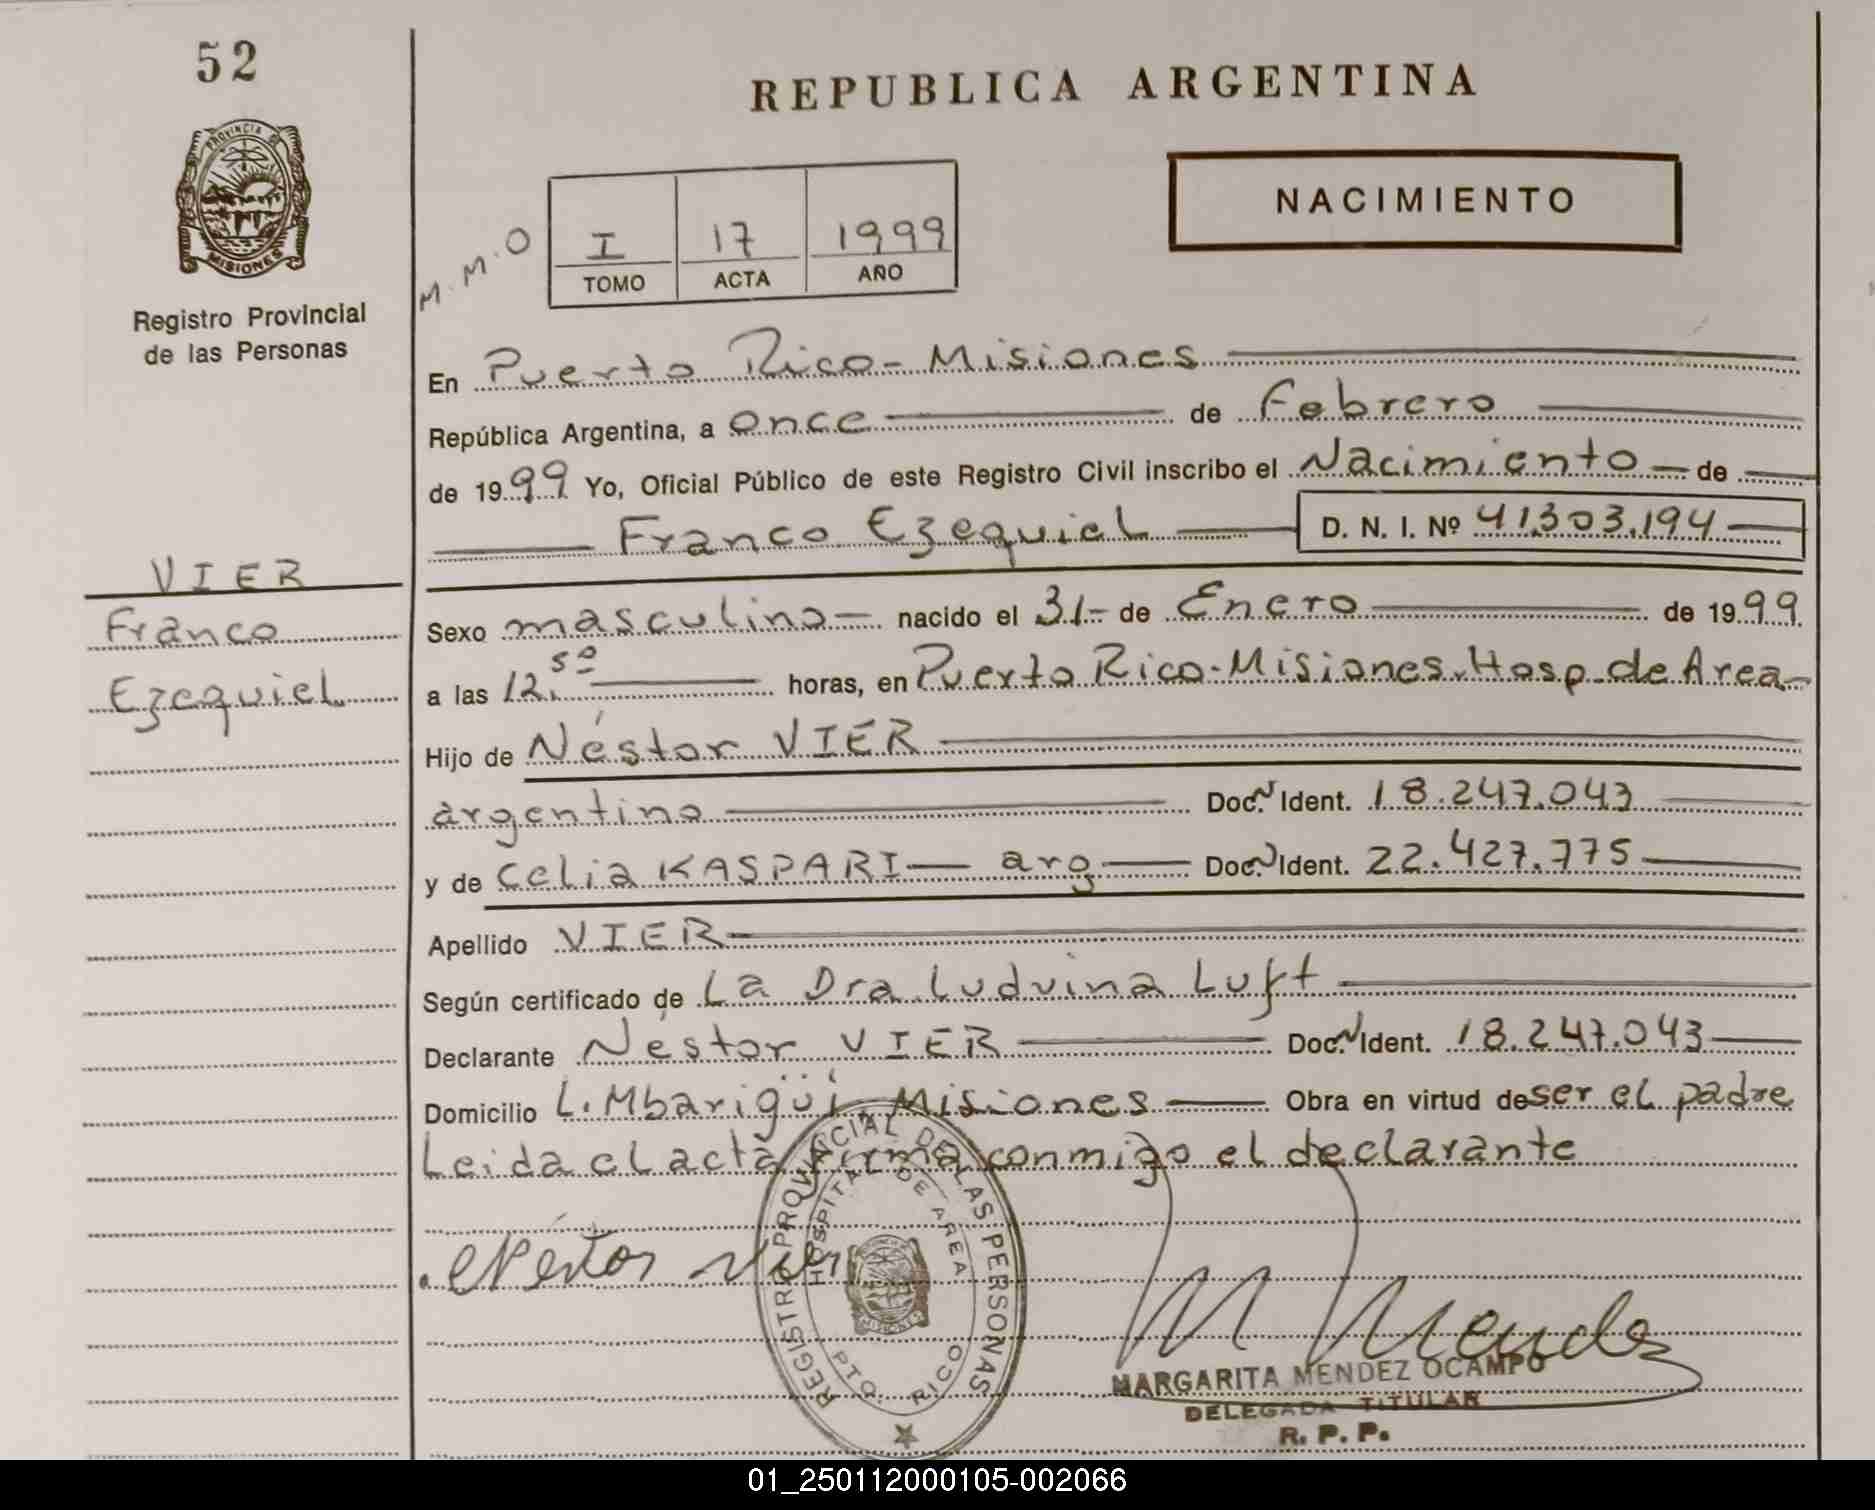 52
REPUBLICA ARGENTINA
PROVINCIA
MISIONES
NACIMIENTO
M.M.O
I 17 1999
TOMO ACTA AÑO
Registro Provincial
de las Personas
En Puerto Rico - Misiones
República Argentina, a once de Febrero
de 1999 Yo, Oficial Público de este Registro Civil inscribo el Nacimiento de
Franco Ezequiel D. N. I. Nº 41.303.194
VIER
Franco
Ezequiel
Sexo masculino nacido el 31 de Enero de 1999
a las 12.50 horas, en Puerto Rico - Misiones. Hosp. de Area
Hijo de Néstor VIER
argentino Doc. N Ident. 18.247.043
y de Celia KASPARI arg Doc. N Ident. 22.427.775
Apellido VIER
Según certificado de La Dra Ludvina Luft
Declarante Néstor VIER Doc. N Ident. 18.247.043
Domicilio L. Mbarigüí, Misiones Obra en virtud de ser el padre
Leida el acta firma conmigo el declarante
REGISTRO PROVINCIAL DE LAS PERSONAS
HOSPITAL DE AREA
PTO. RICO
MISIONES
Néstor Vier
M Mendez
MARGARITA MENDEZ OCAMPO
DELEGADA TITULAR
R. P. P.
01_250112000105-002066